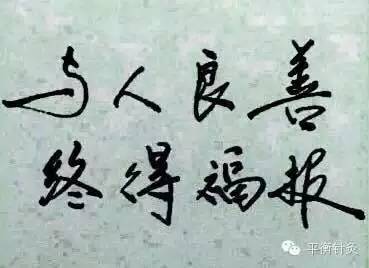 与人良善
终得福报
平衡针灸